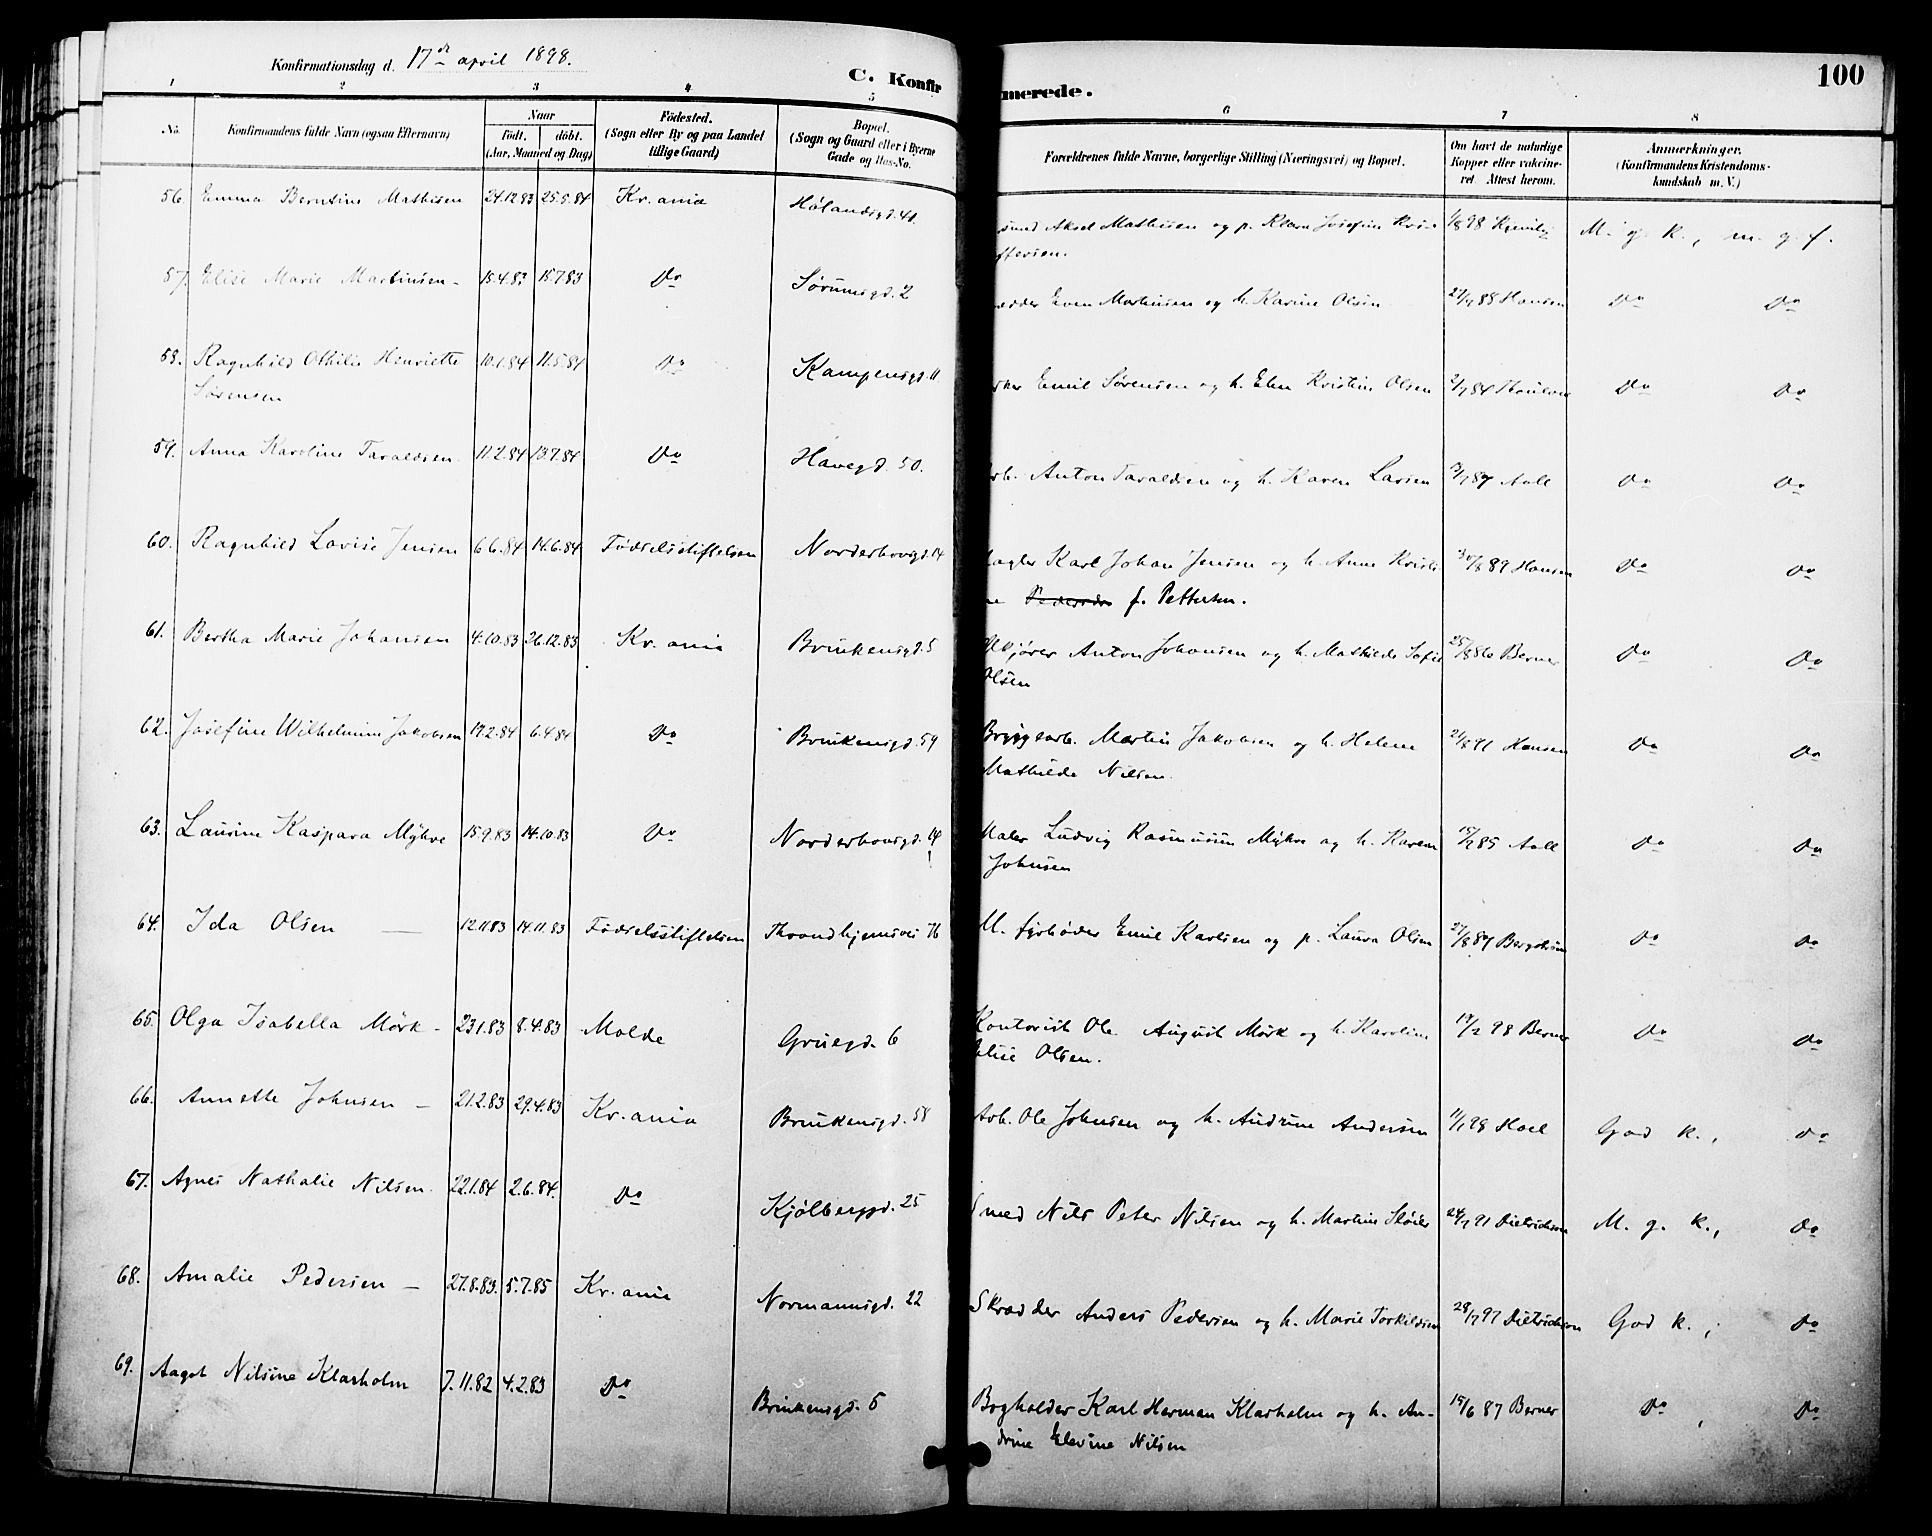 Konfirmationsdag d. 17de april 1898.
C. Konfirmerede.
100
1 2 3 4 5 6 7 8
No.
Konfirmandens fulde Navn (ogsaa Efternavn)
Naar
födt. döbt.
(Aar, Maaned og Dag)
Födested.
(Sogn eller By og paa Landet
tillige Gaard)
Bopæl.
(Sogn og Gaard eller i Byerne
Gade og Hus-No.
Forældrenes fulde Navne, borgerlige Stilling (Næringsvei) og Bopæl.
Om havt de naturlige
Kopper eller vakcine-
ret Attest herom.
Anmerkninger.
(Konfirmandens Kristendoms-
kundskab m. V.)
56. Emma Berntine Mathisen 24.12.83 25.5.84 Kr.ania Hølandsgd. 41. Aksel Mathisen og p. Klara Josefine 98 M. g. k., m. g. f.
57. Elise Marie Martinsen 15.4.83 15.7.83 Do Sørumsgd. 2 Even Martinsen og h. Karine Olsen 88 Hansen Do Do
58. Ragnhild Othilie Henriette 10.1.84 11.5.84 Do Kampensgd. 11. Emil Sørensen og h. Elen Kristine Olsen 84 Do Do
Sørensen
59. Anna Karoline Taraldsen 11.2.84 13.7.84 Do Havegd. 50. Arb. Anton Taraldsen og h. Karen Larsen Aall Do Do
60. Ragnhild Lovise Jensen 6.6.84 14.6.84 Fødselsstiftelsen Norderhovsgd. 14 Karl Johan Jensen og h. Anne Kristi- 89 Hansen Do Do
ne f. Pettersen.
61. Bertha Marie Johansen 4.10.83 26.12.83 Kr.ania Brinkensgd. 5 Anton Johansen og h. Mathilde Sofie 25/8 86 Berner Do Do
Olsen
62. Josefine Wilhelmine Jakobsen 17.2.84 6.4.84 Do Brinkensgd. 59 Bryggearb. Martin Jakobsen og h. Helene 91 Hansen Do Do
Mathilde Nilsen
63. Laurine Kaspara Myhre 15.9.83 14.10.83 Do Norderhovsgd. 14 Maler Ludvig Rasmussen Myhre og h. Karen 85 Aall Do Do
Johnsen
64. Ida Olsen 12.11.83 14.11.83 Fødselsstiftelsen Throndhjemsvei 76 U. fyrbøder Emil Karlsen og p. Laura Olsen Do Do
65. Olga Isabella Mörk - 23.1.83 8.4.83 Molde Gruegd. 6 Kontorist Ole August Mörk og h. Karoline 98 Berner Do Do
Elise Olsen.
66. Annette Johnsen - 21.2.83 29.4.83 Kr.ania Brinkensgd. 58 Arb. Ole Johnsen og h. Andrine Andersen 11/1 98 God k., Do
67. Agnes Nathalie Nilsen 22.1.84 2.6.84. Do Kjölberggd. 25 Smed Nils Peter Nilsen og h. Martine 91 Dietrichson M. g. k., Do
68. Amalie Pedersen - 27.8.83. 5.7.85 Kr.ania Normannsgd. 22 Skrædder Anders Pedersen og h. Marie Torkildsen 28/7 97 Dietrichson God k., Do
69. Aagot Nilsine Klarholm 7.11.82 4.2.83 Do Brinkensgd. 5 Bogholder Karl Herman Klarholm og h. An- 87 Berner Do, Do
drine Elevine Nilsen